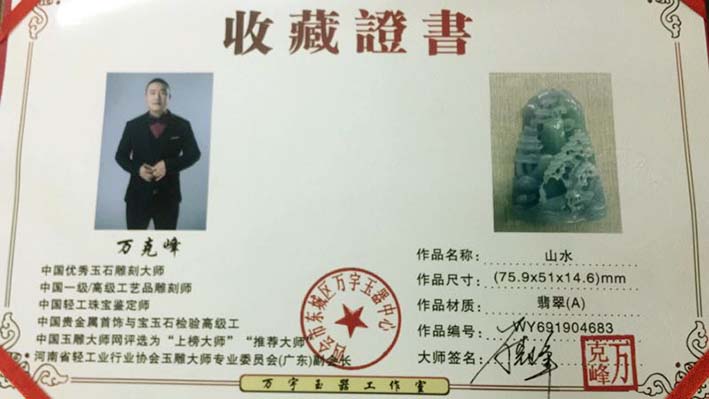 收藏證書
万克峰
中国优秀玉石雕刻大师
中国一级/高级工艺品雕刻师
中国轻工珠宝鉴定师
中国贵金属首饰与宝玉石检验高级工
中国玉雕大师网评选为“上榜大师”“推荐大师”
河南省轻工业行业协会玉雕大师专业委员会(广东)副会长
作品名称： 山水
作品尺寸： (75.9x51x14.6)mm
作品材质： 翡翠(A)
作品编号： WY691904683
大师签名：
万克峰
四会市东城区万字玉器中心
万字玉器工作室